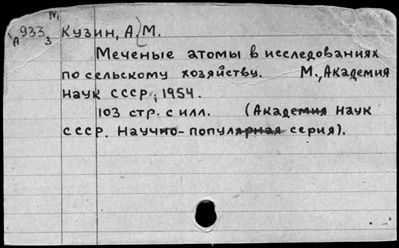 А933 Кузин, А. М.
3
Меченые атомы в исследованиях
по сельскому хозяйству. М., Академия
наук СССР, 1954.
103 стр. с илл. (Академия наук
СССР. Научно-популярная серия).